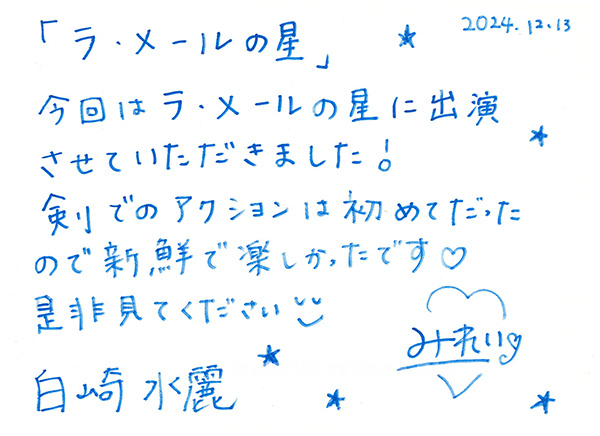 「ラ・メールの星」
2024.12.13
今回はラ・メールの星に出演
させていただきました!
剣でのアクションは初めてだった
ので新鮮で楽しかったです♡
是非見てください
みれい
白崎水麗